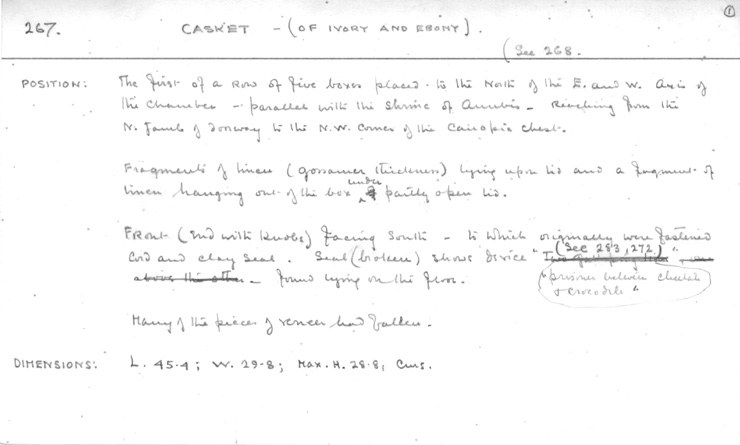 ①
267. CASKET - (OF IVORY AND EBONY).
(See 268.
POSITION: The first of a Row of five boxes placed - to the North of the E. and W. Axis of
the Chamber - parallel with the Shrine of Anubis - Reaching from the
N. Jamb of doorway to the N.W. Corner of the Canopic chest.
Fragments of linen (gossamer thickness) lying upon lid and a fragment of
linen hanging out of the box under partly open lid.
Front (End with Knobs) facing South - to which originally were fastened
Cord and clay Seal. Seal (broken) shows device (See 283, 272) "Two
above the other - found lying on the floor. "prisoner between cheetah
& crocodile"
Many of the pieces of veneer had fallen.
DIMENSIONS: L. 45.4; W. 29.8; Max. H. 28.8, Cms.